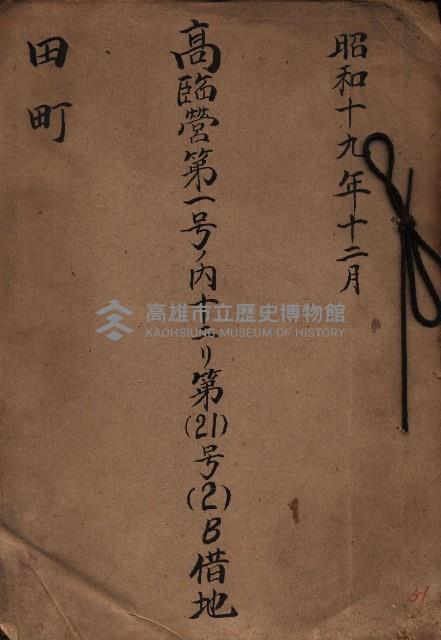 昭和十九年十二月
高臨營第一号ノ内十二リ第(21)号(2)B借地
田町
高雄市立歷史博物館
KAOHSIUNG MUSEUM OF HISTORY
51